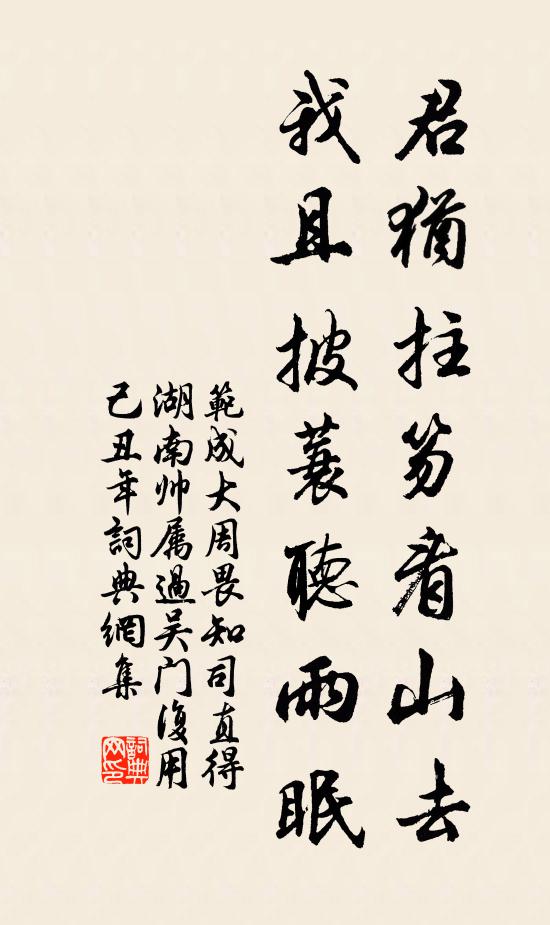 君猶拄笏看山去
我且披蓑聽雨眠
範成大周畏知司直得
湖南帅属過吴门復用
己丑年詞典網集
詞典
网